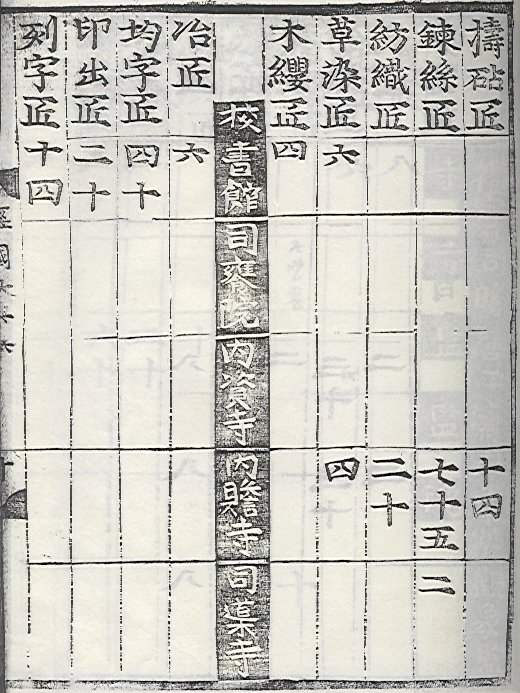 擣砧匠 十四
鍊絲匠 七十五 二
紡織匠 二十
草染匠 六 四
木纓匠 四
校書館 司饔院 内資寺 内贍寺 司䆃寺
冶匠 六
均字匠 四十
印出匠 二十
刻字匠 十四
經國大典